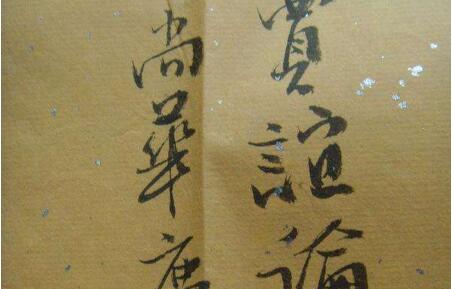 賈誼論
尚華